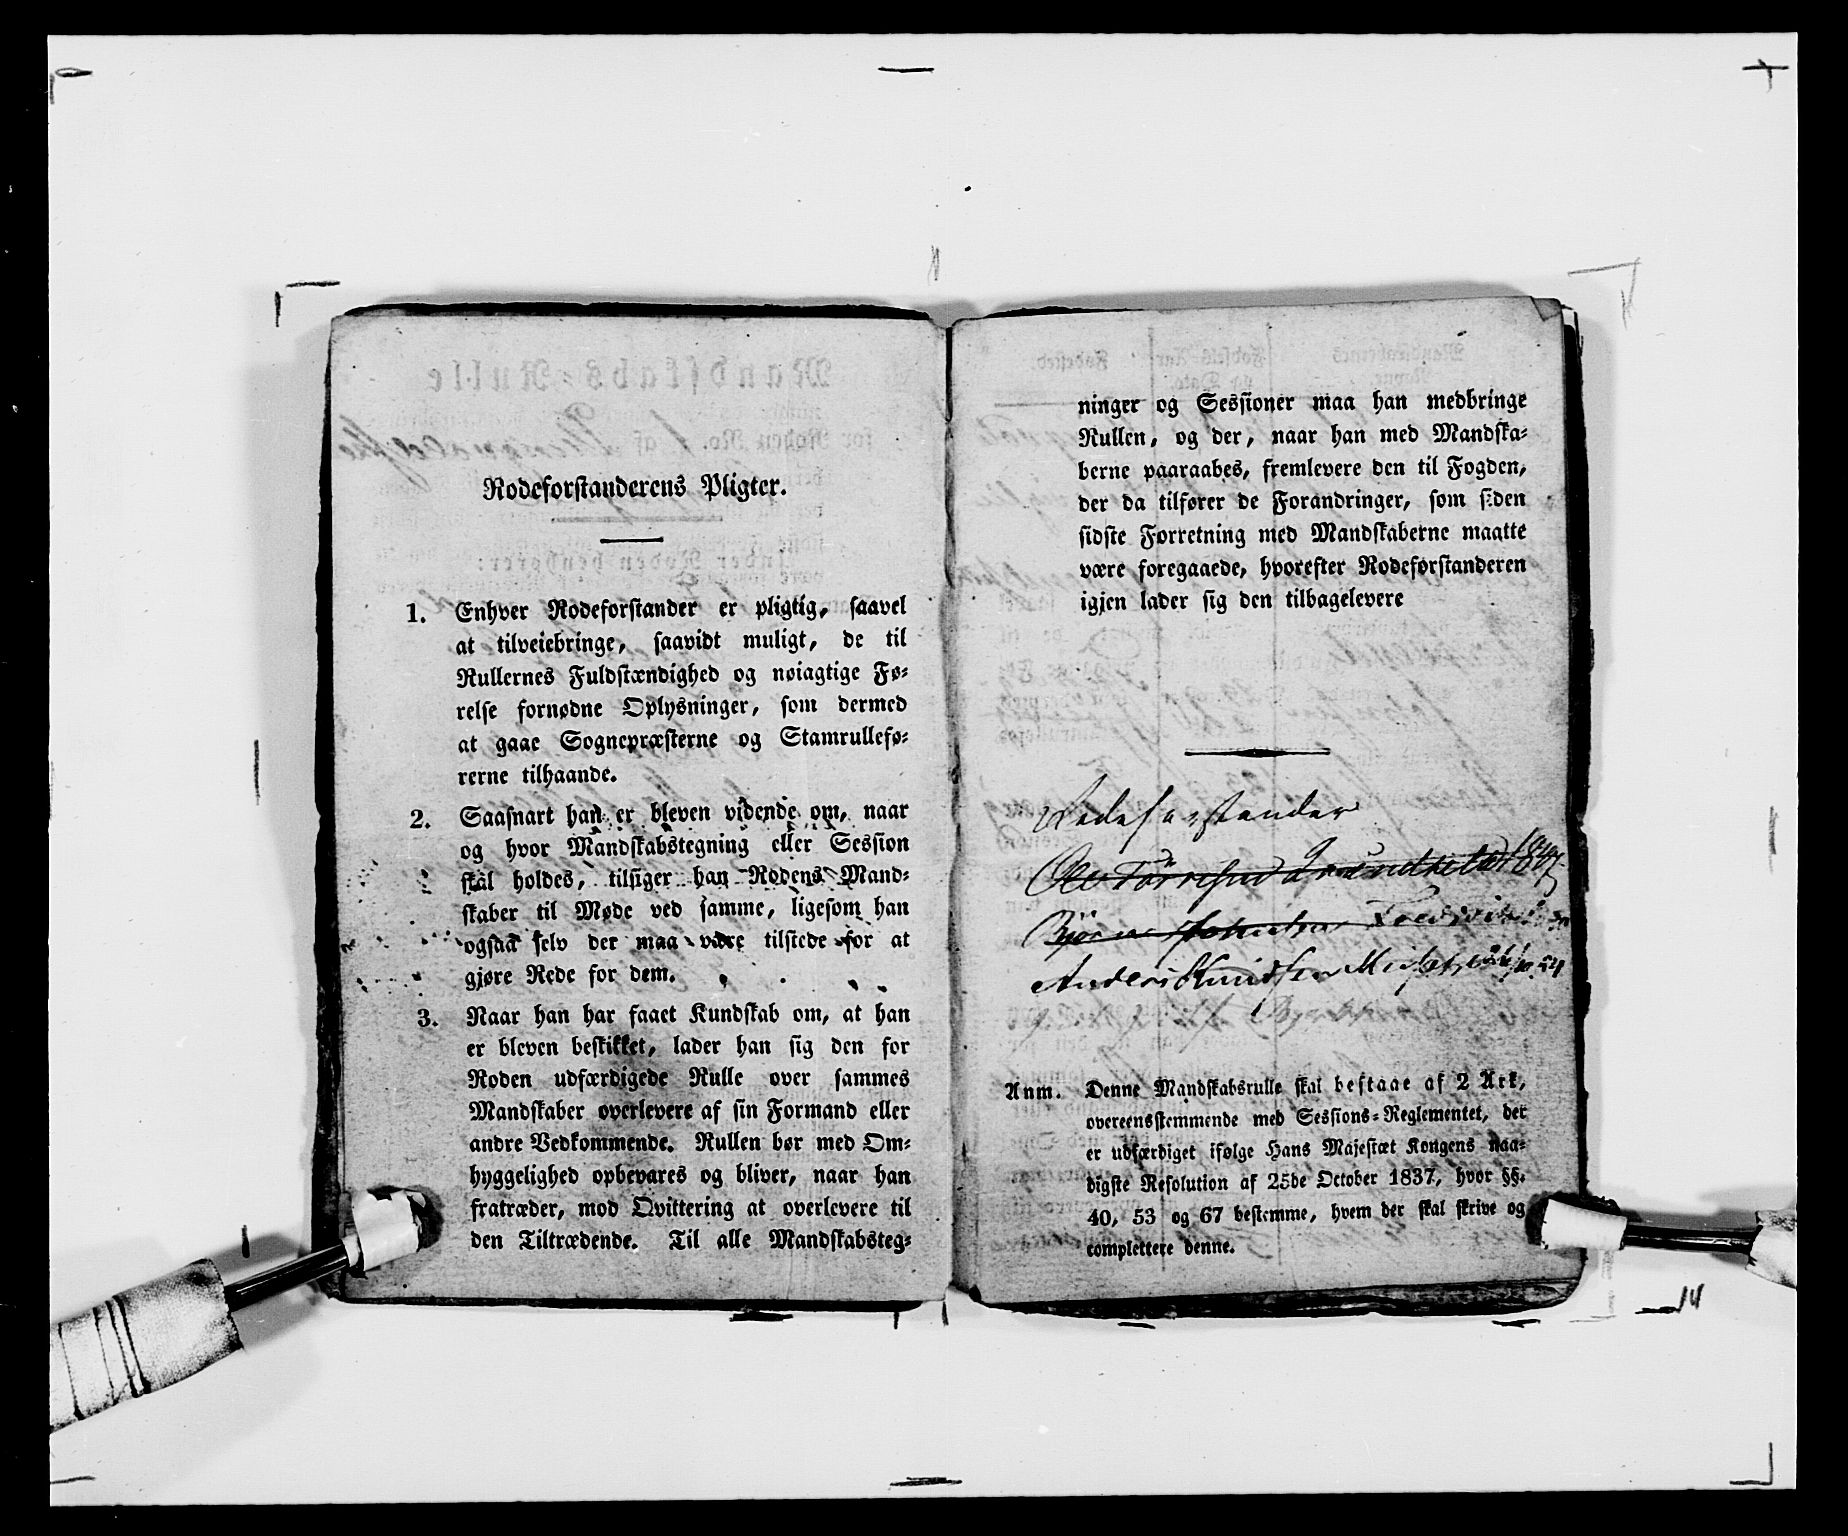 Rodeforstanderens Pligter.
1. Enhver Rodeforstander er pligtig, saavel
at tilveiebringe, saavidt muligt, de til
Rullernes Fuldstændighed og nøiagtige Fø-
relse fornødne Oplysninger, som dermed
at gaae Sognepræsterne og Stamrullefø-
rerne tilhaande.
2. Saasnart han er bleven vidende om, naar
og hvor Mandskabstegning eller Session
skal holdes, tilsiger han Rodens Mand-
skaber til Møde ved samme, ligesom han
ogsaa selv der maa være tilstede for at
gjøre Rede for dem.
3. Naar han har faaet Kundskab om, at han
er bleven beskikket, lader han sig den for
Roden udfærdigede Rulle over sammes
Mandskaber overlevere af sin Formand eller
andre Vedkommende. Rullen bør med Om-
hyggelighed opbevares og bliver, naar han
fratræder, mod Qvittering at overlevere til
den Tiltrædende. Til alle Mandskabsteg-
ninger og Sessioner maa han medbringe
Rullen, og der, naar han med Mandska-
berne paaraabes, fremlevere den til Fogden,
der da tilfører de Forandringer, som siden
sidste Forretning med Mandskaberne maatte
være foregaaede, hvorefter Rodeforstanderen
igjen lader sig den tilbagelevere
Rodeforstander
Ole
Bjørn
Anders Knudsen
Anm. Denne Mandskabsrulle skal bestaae af 2 Ark,
overeensstemmende med Sessions-Reglementet, der
er udfærdiget ifølge Hans Majestæt Kongens naa-
digste Resolution af 25de October 1837, hvor §§.
40, 53 og 67 bestemme, hvem der skal skrive og
complettere denne.
14